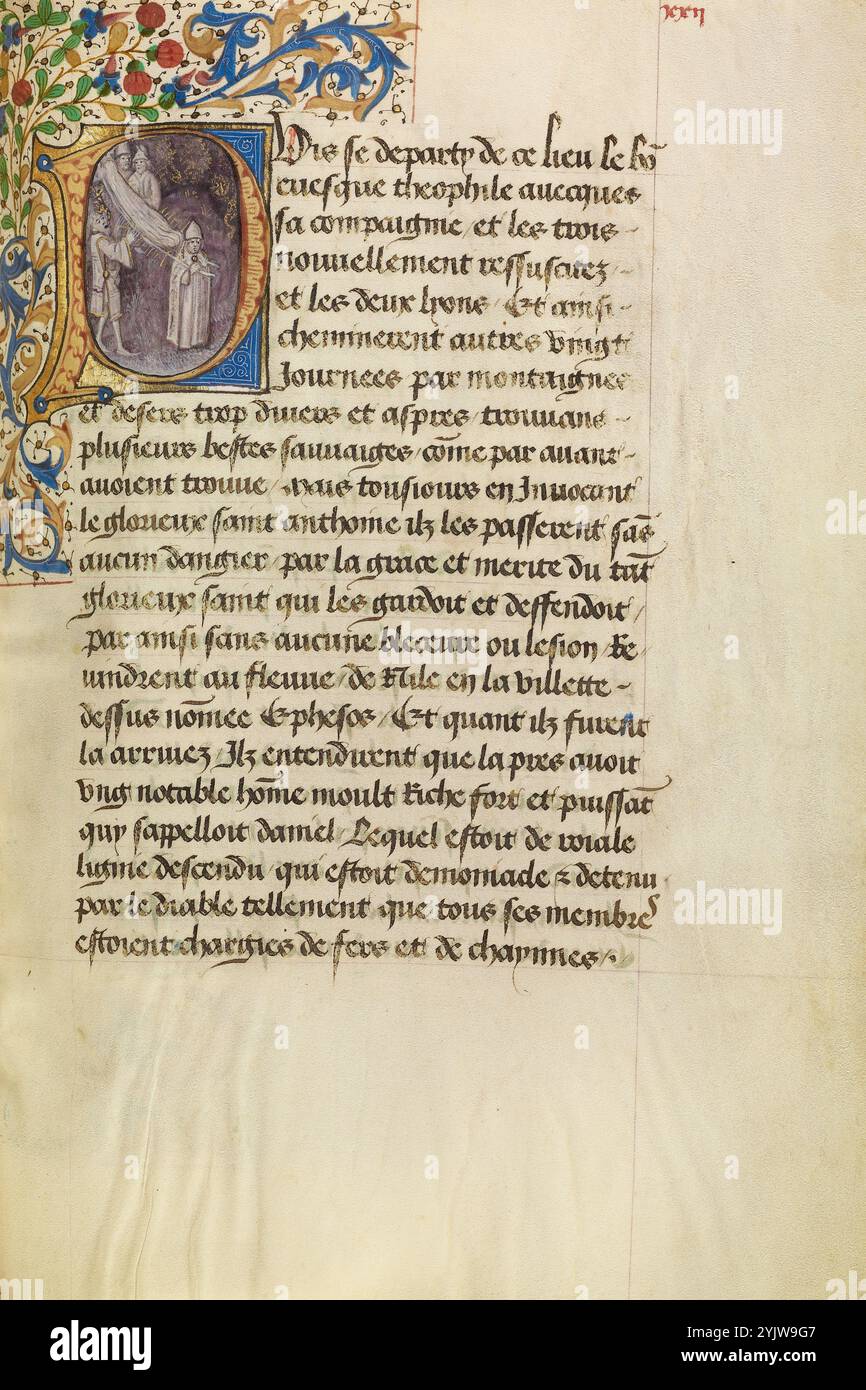 xxij
Puis se departy de ce lieu le bõ
euesque theophile auecques
sa compaignie / et les trois
nouuellement ressuscitez
et les deux lyons / Et ainsi
cheminerent autres vingt
Journees par montaignes
et desers trop diuers et aspres / trouuans
plusieurs bestes sauuaiges / cõme par auant
auoient trouue / Mais tousiours en Inuocant
le glorieux saint anthoine ilz les passerent sãs
aucun dangier / par la grace et merite du tãt
glorieux saint qui les gardoit et deffendoit /
par ainsi sans aucune bleceure ou lesion / Re/
uindrent au fleuue / de Nile en la villette
dessus nõmee Ephesos / Et quant ilz furent
la arriuez / Ilz entendirent que la pres auoit
vng notable hõme moult Riche fort et puissãt
quy sappelloit daniel / Lequel estoit de roiale
ligme descendu / qui estoit demoniacle & detenu
par le diable tellement que tous ses membres
estoient chargies de fers et de chaynnes /.
alamy
alamy
Image ID: 2YJW9G7
www.alamy.com